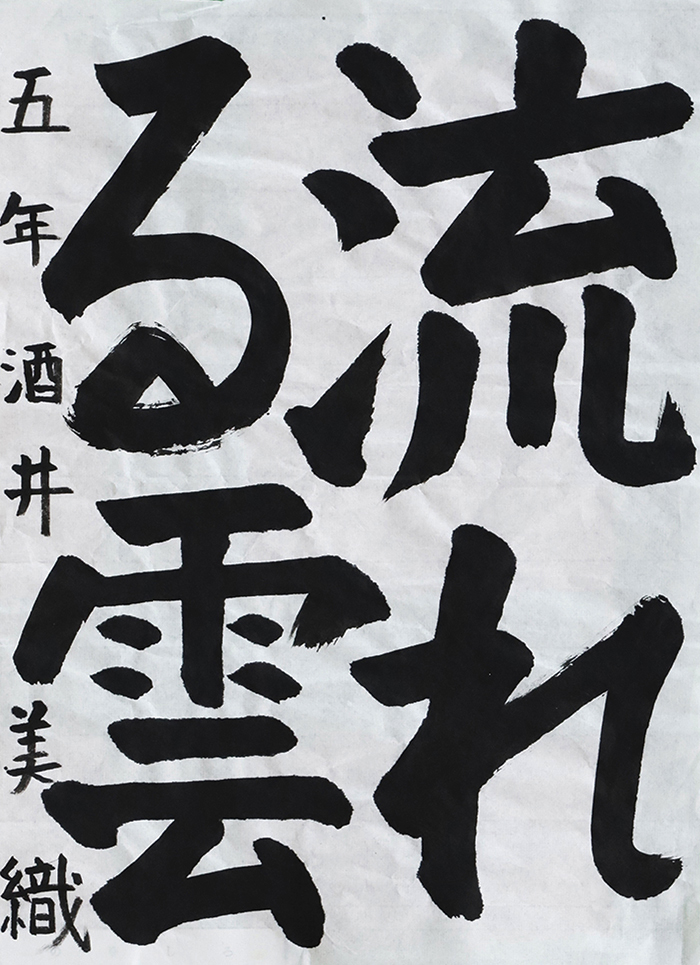 流れ
る雲
五年酒井美織